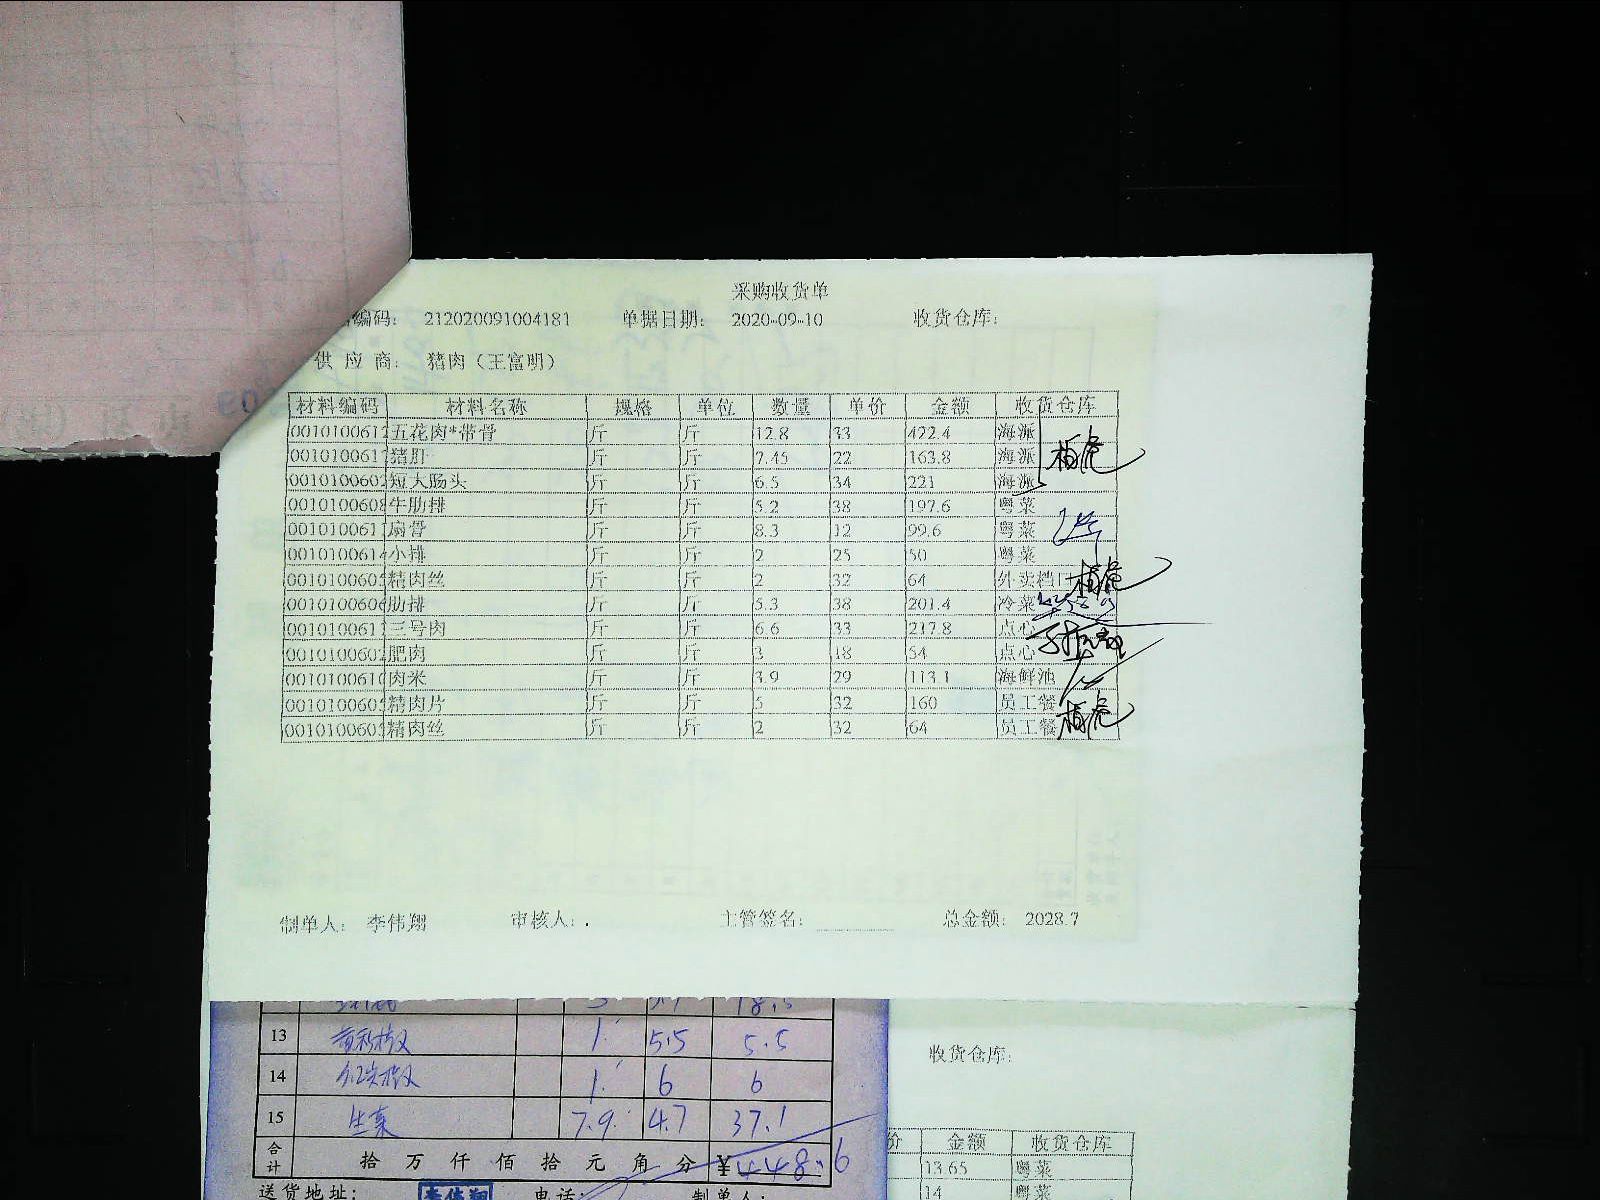 采购收货单
编码： 212020091004181 单据日期： 2020-09-10 收货仓库：
供 应 商： 猪肉（王富明）
材料编码 材料名称 规格 单位 数量 单价 金额 收货仓库
0010100612 五花肉*带骨 斤 斤 12.8 33 422.4 海派
0010100611 猪肝 斤 斤 7.45 22 163.8 海派
0010100602 短大肠头 斤 斤 6.5 34 221 海派
0010100608 牛肋排 斤 斤 5.2 38 197.6 粤菜
0010100611 扇骨 斤 斤 8.3 12 99.6 粤菜
0010100614 小排 斤 斤 2 25 50 粤菜
0010100605 精肉丝 斤 斤 2 32 64 外卖档口
0010100606 肋排 斤 斤 5.3 38 201.4 冷菜
0010100611 三号肉 斤 斤 6.6 33 217.8 点心
0010100602 肥肉 斤 斤 3 18 54 点心
0010100610 肉米 斤 斤 3.9 29 113.1 海鲜池
0010100605 精肉片 斤 斤 5 32 160 员工餐
0010100605 精肉丝 斤 斤 2 32 64 员工餐
制单人： 李伟翔 审核人：. 主管签名： 总金额： 2028.7
18.5
13 1 5.5 5.5
14 1 6 6
15 生菜 7.9 4.7 37.1
合计 拾 万 仟 佰 拾 元 角 分 ¥448.6
送货地址： 李伟翔 电话： 制单人：
收货仓库：
价 金额 收货仓库
13.65 粤菜
14 粤菜